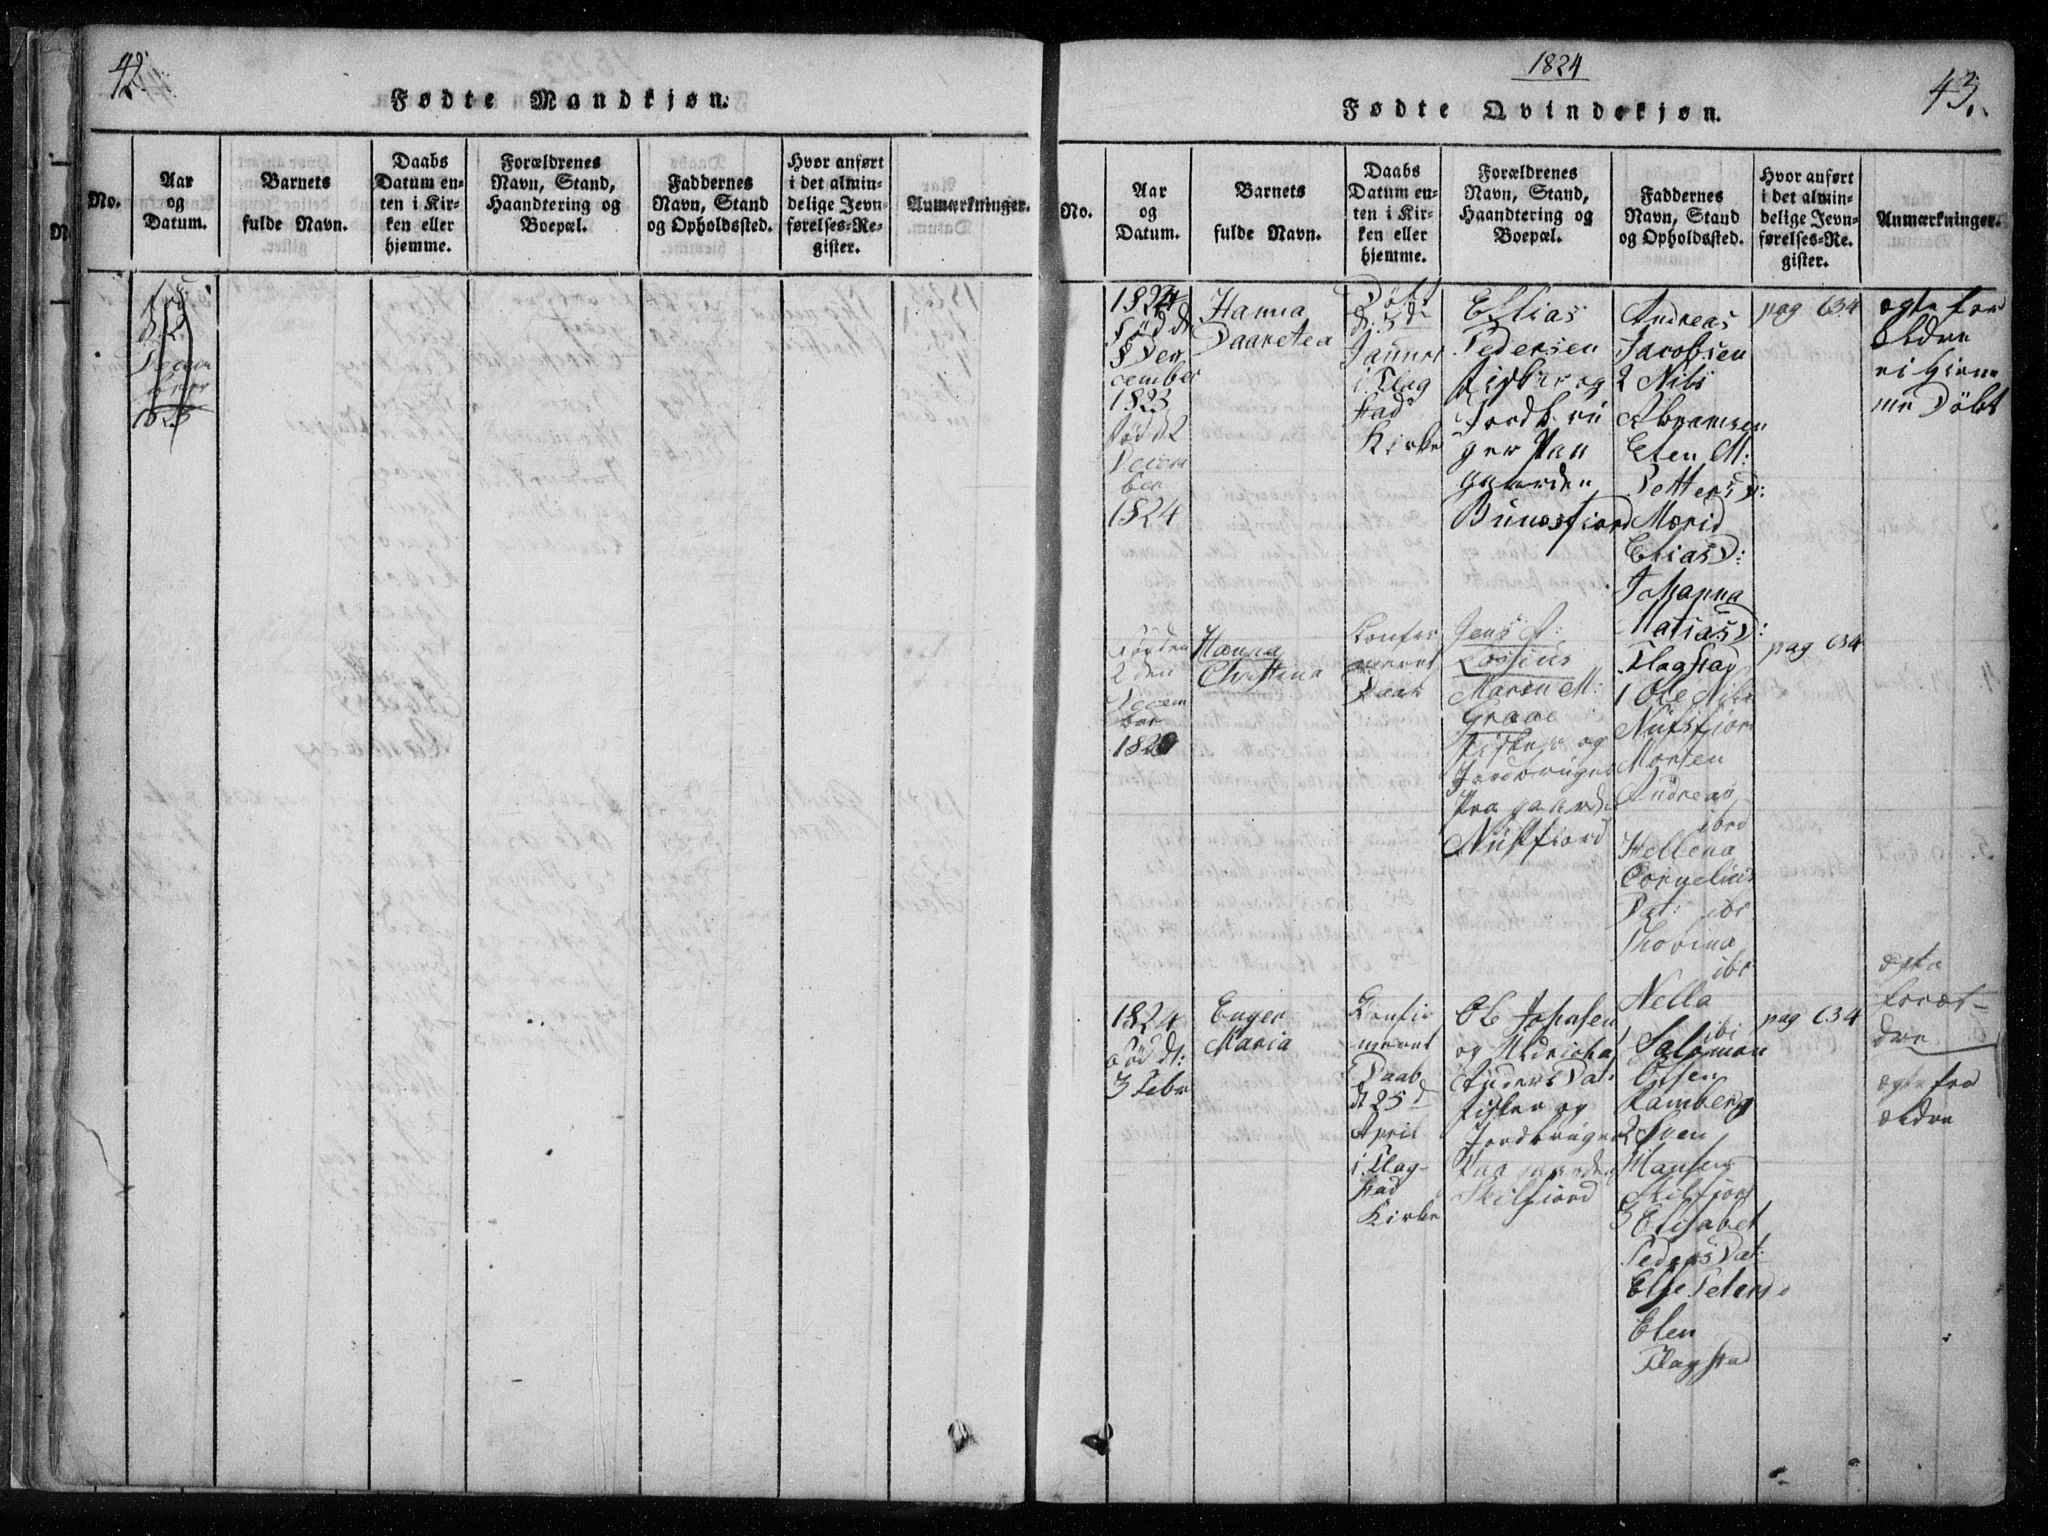 42.
Fødte Mandkjøn.
No.
Aar
og
Datum.
Barnets
fulde Navn.
Daabs
Datum en-
ten i Kir-
ken eller
hjemme.
Forældrenes
Navn, Stand,
Haandtering og
Boepæl.
Faddernes
Navn, Stand
og Opholdssted.
Hvor anført
i det almin-
delige Jevn-
førelses-Re-
gister.
Anmærkninger.
Decem
1823
1824
43.
Fødte Qvindekjøn.
No.
Aar
og
Datum.
Barnets
fulde Navn.
Daabs
Datum en-
ten i Kir-
ken eller
hjemme.
Forældrenes
Navn, Stand,
Haandtering og
Boepæl.
Faddernes
Navn, Stand
og Opholdssted.
Hvor anført
i det almin-
delige Jevn-
førelses-Re-
gister.
Anmærkninger.
1824
Föd d
8 De
cember
1823
föd d 2
Decem
ber
1824
Hanna
Daaretea
Döbt
d: 5 d
Januar
i Flag
stad
Kirke
Elias
Pedersen
Fisker og
Jordbrü
ger Paa
gaarden
Bunesfiord
Andreas
Jacobsen
2 Nils
Abramsen
Elen M:
Petters D:
Marid
Elias D:
Johanna
Matias D:
Flagstad
pag 634
ægte for
ældre
ei hiem
me Döbt
Föd den
2 den
Decem
ber
Hanna
Christina
Confir
meret
Daab
Jens A:
Lossius
Maren M:
Graae
Fisker og
Jordbruger
Paa gaarde
Nüsfiord
1 Ole Nils
Nüsfiord
Morten
Andreas
ibid
Hellena
Cornelius
Dat: ibi
Thorina
ibi
Nella
ibi
pag 634
ægte
foræl-
dre
1824
föd dt:
3 Febr
Enger
Maria
Confir
meret
Daab
d 25 d
April
i Flag-
stad
Kirke
Ole Johnsen
og Uldricha
Anders Dat:
Fisker og
Jordbruger
Paa gaarden
Skelfiord
1 Salomon
Olsen
Ramberg
2 Sven
Hansen
Skelfiord
3 Elisabet
Peders Dat:
Else Peters D
Elen
Flagstad
pag 634
ægte for
ældre